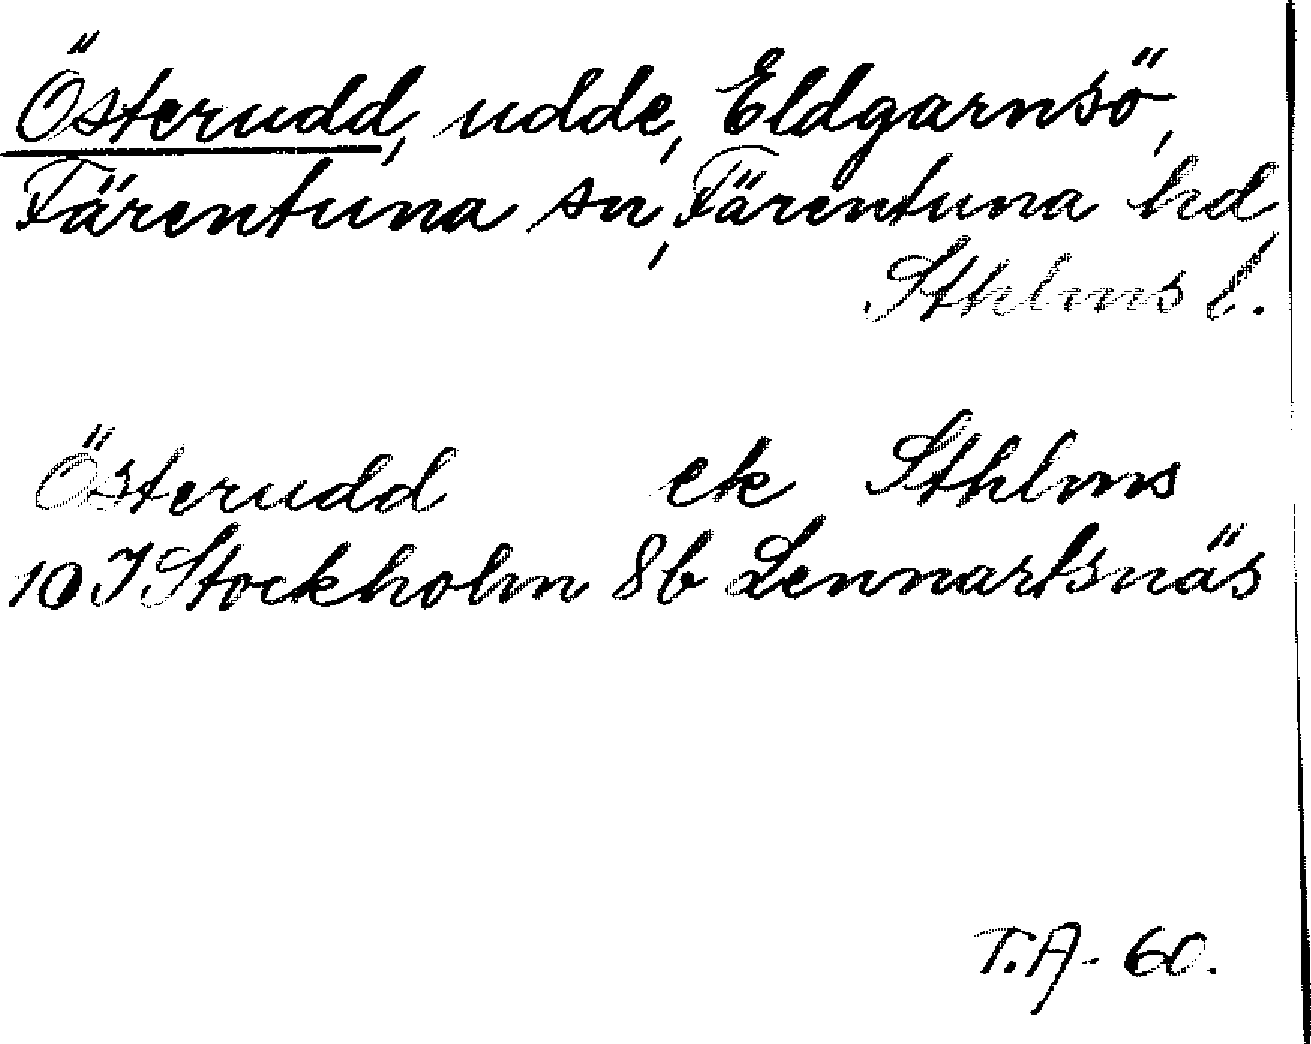 Österudd, udde, Eldgarnsö,
Färentuna sn, Färentuna hd,
Sthlms l.
Österudd ek Sthlms
10 I Stockholm 8b Lennartsnäs
T.A. 60.